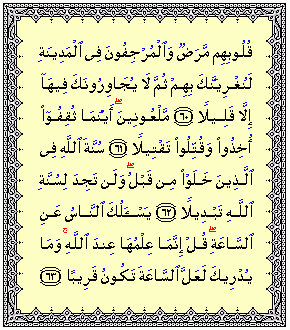 قُلُوبِهِم مَّرَضٌ وَٱلْمُرْجِفُونَ فِى ٱلْمَدِينَةِ
لَنُغْرِيَنَّكَ بِهِمْ ثُمَّ لَا يُجَاوِرُونَكَ فِيهَآ
إِلَّا قَلِيلًا ۝٦٠ مَّلْعُونِينَ ۖ أَيْنَمَا ثُقِفُوٓا۟
أُخِذُوا۟ وَقُتِّلُوا۟ تَقْتِيلًا ۝٦١ سُنَّةَ ٱللَّهِ فِى
ٱلَّذِينَ خَلَوْا۟ مِن قَبْلُ ۖ وَلَن تَجِدَ لِسُنَّةِ
ٱللَّهِ تَبْدِيلًا ۝٦٢ يَسْـَٔلُكَ ٱلنَّاسُ عَنِ
ٱلسَّاعَةِ ۖ قُلْ إِنَّمَا عِلْمُهَا عِندَ ٱللَّهِ ۚ وَمَا
يُدْرِيكَ لَعَلَّ ٱلسَّاعَةَ تَكُونُ قَرِيبًا ۝٦٣